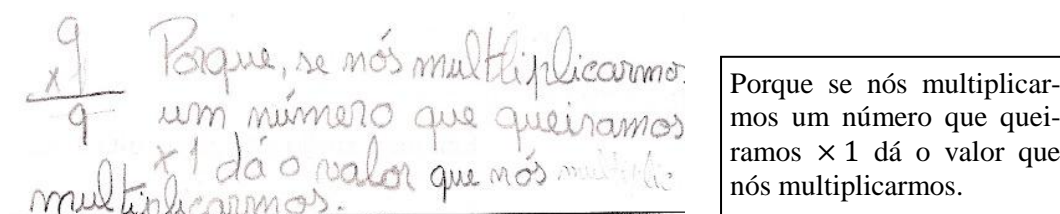 9
× 1
9
Porque, se nós multliplicarmos
um número que queiramos
× 1 dá o valor que nós
multiplicarmos.
Porque se nós multiplicar-
mos um número que quei-
ramos × 1 dá o valor que
nós multiplicarmos.